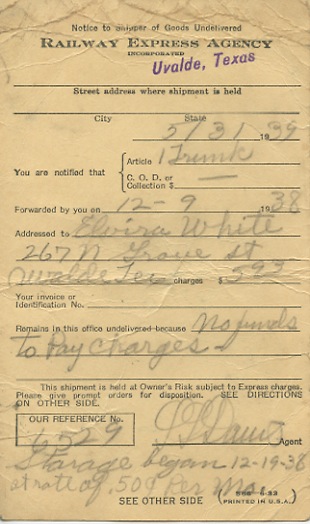 Notice to Shipper of Goods Undelivered
RAILWAY EXPRESS AGENCY
INCORPORATED
Uvalde, Texas
Street address where shipment is held
City State
5/31 1939
You are notified that
Article 1 Trunk
C. O. D. or
Collection $ —
Forwarded by you on 12-9 1938
Addressed to Elvira White
267 N Grove st
Uvalde Tex charges $ 593
Your invoice or
Identification No.
Remains in this office undelivered because No funds
to Pay charges
This shipment is held at Owner's Risk subject to Express charges.
Please give prompt orders for disposition. SEE DIRECTIONS
ON OTHER SIDE.
OUR REFERENCE No.
6529
Agent
Storage began 12-19-38
at rate of .50¢ Per Mo.
SEE OTHER SIDE
(PRINTED IN U.S.A.)